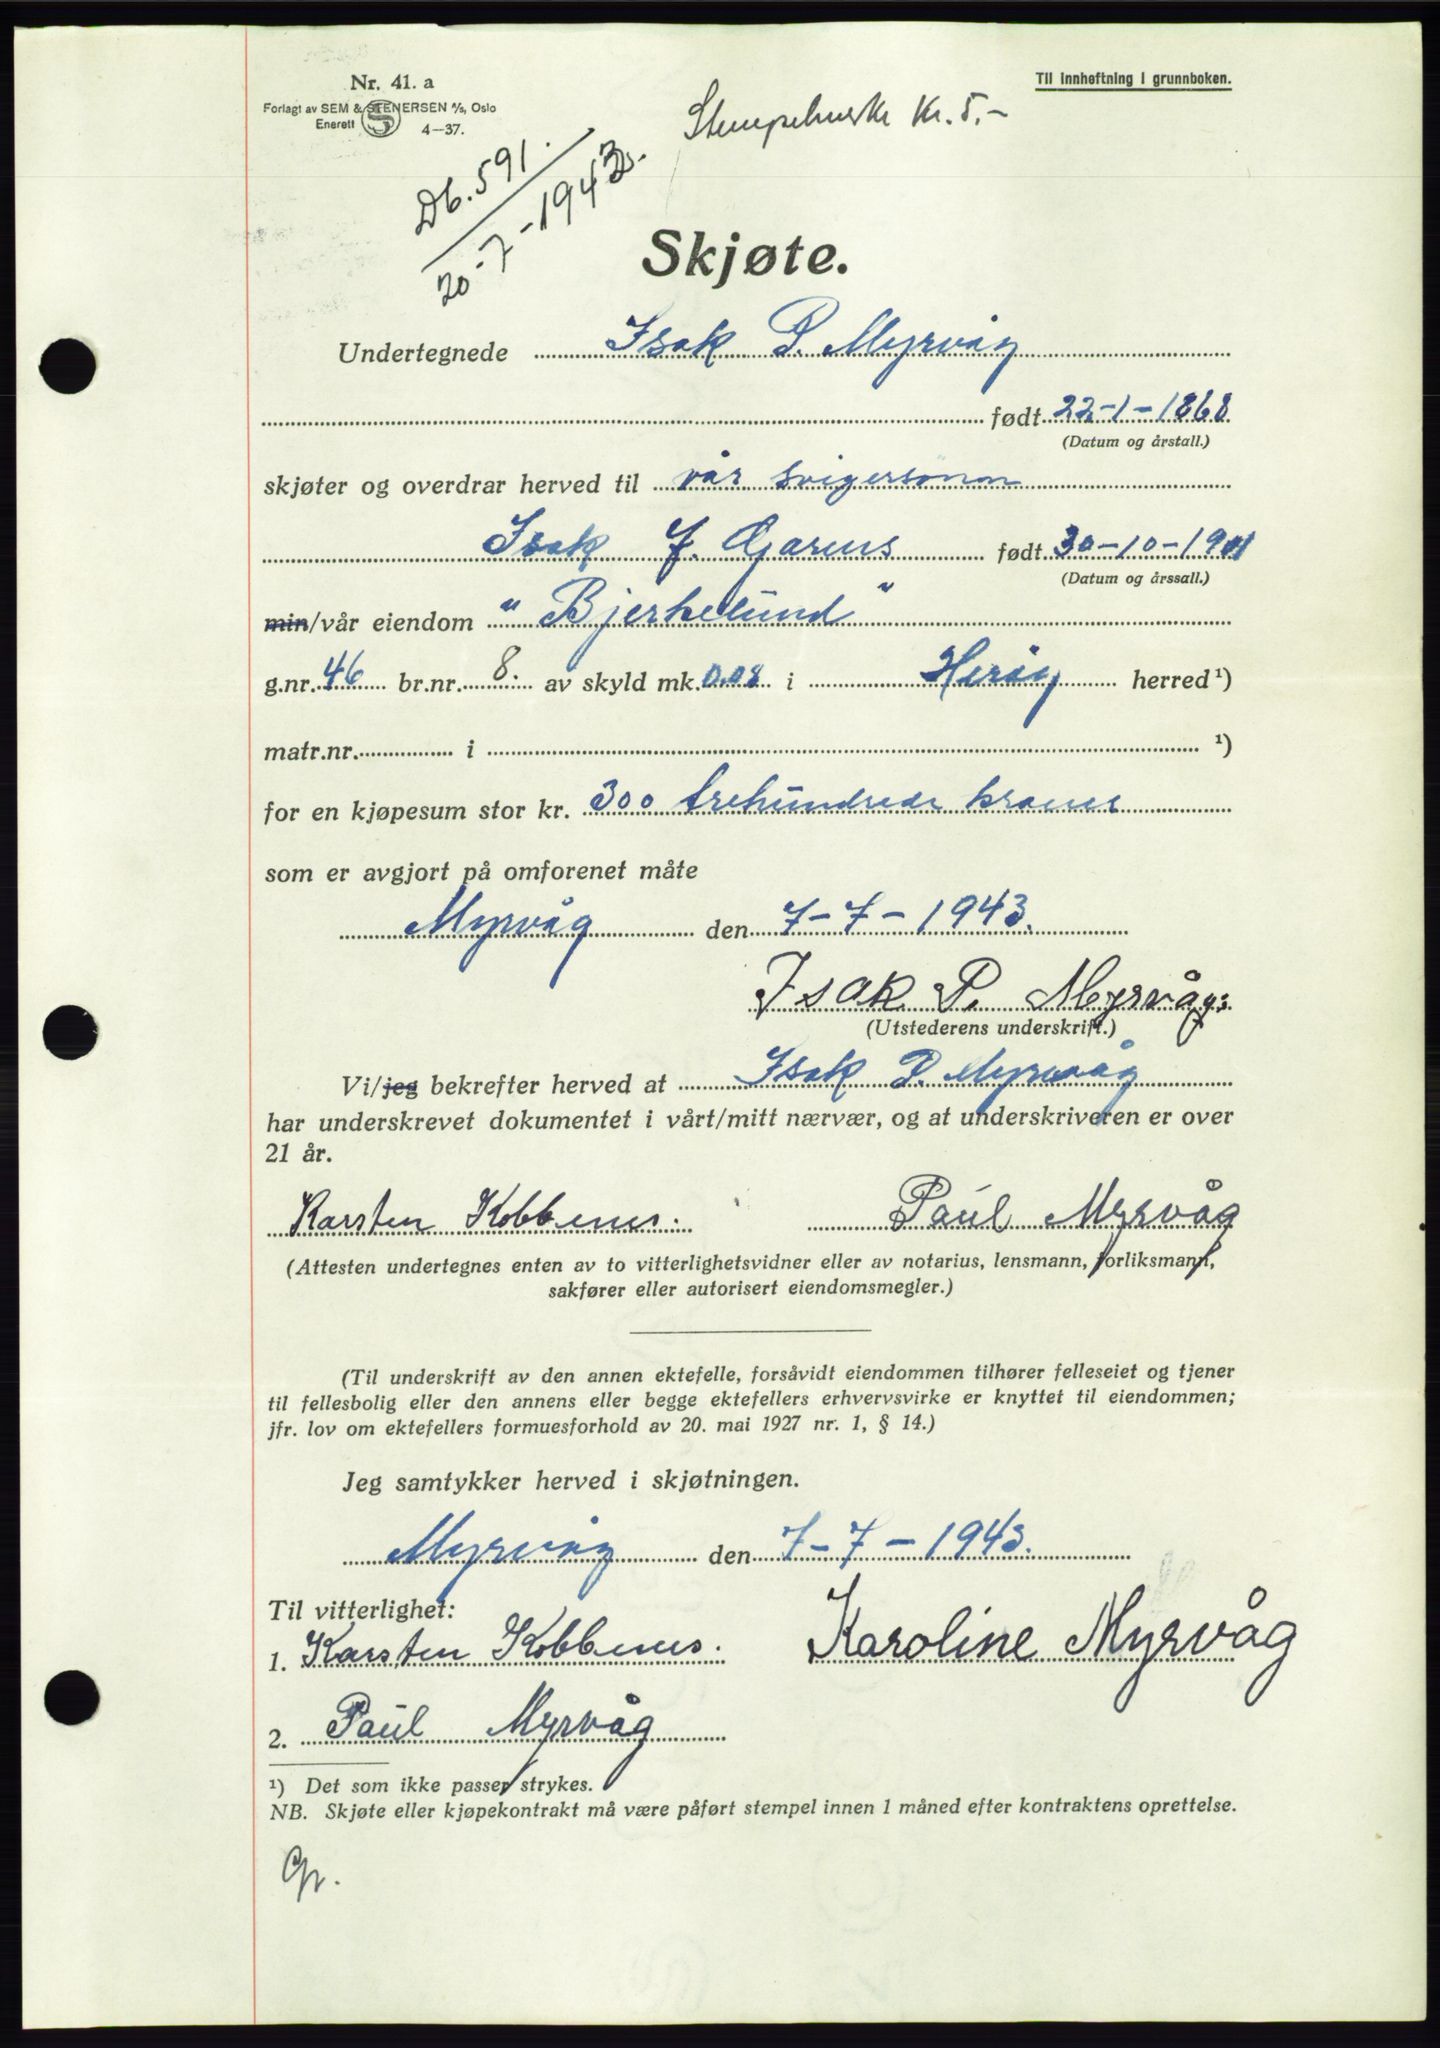 Nr. 41. a
Forlagt av SEM & STENERSEN A/S, Oslo
Enerett 4—37.
Til innheftning i grunnboken.
Stempelmerke kr. 5.-
Db. 591.
20-7-1943.
Skjøte.
Undertegnede Isak P. Myrvåg
født 22-1-1868
(Datum og årstall.)
skjøter og overdrar herved til vår svigersønn
Isak J. Gjerus født 30-10-1901
(Datum og årssall.)
min/vår eiendom "Bjerkelund"
g.nr. 46 br.nr. 8. av skyld mk. 0.08 i Herøy herred ¹)
matr.nr. i ¹)
for en kjøpesum stor kr. 300 trehundrede kroner
som er avgjort på omforenet måte
Myrvåg den 7-7-1943.
Isak P. Myrvåg.
(Utstederens underskrift.)
Vi/jeg bekrefter herved at Isak P. Myrvåg
har underskrevet dokumentet i vårt/mitt nærvær, og at underskriveren er over
21 år.
Karsten Kobbenes. Paul Myrvåg
(Attesten undertegnes enten av to vitterlighetsvidner eller av notarius, lensmann, forliksmann,
sakfører eller autorisert eiendomsmegler.)
(Til underskrift av den annen ektefelle, forsåvidt eiendommen tilhører felleseiet og tjener
til fellesbolig eller den annens eller begge ektefellers erhvervsvirke er knyttet til eiendommen;
jfr. lov om ektefellers formuesforhold av 20. mai 1927 nr. 1, § 14.)
Jeg samtykker herved i skjøtningen.
Myrvåg den 7-7-1943.
Til vitterlighet:
1. Karsten Kobbenes. Karoline Myrvåg
2. Paul Myrvåg
¹) Det som ikke passer strykes.
NB. Skjøte eller kjøpekontrakt må være påført stempel innen 1 måned efter kontraktens oprettelse.